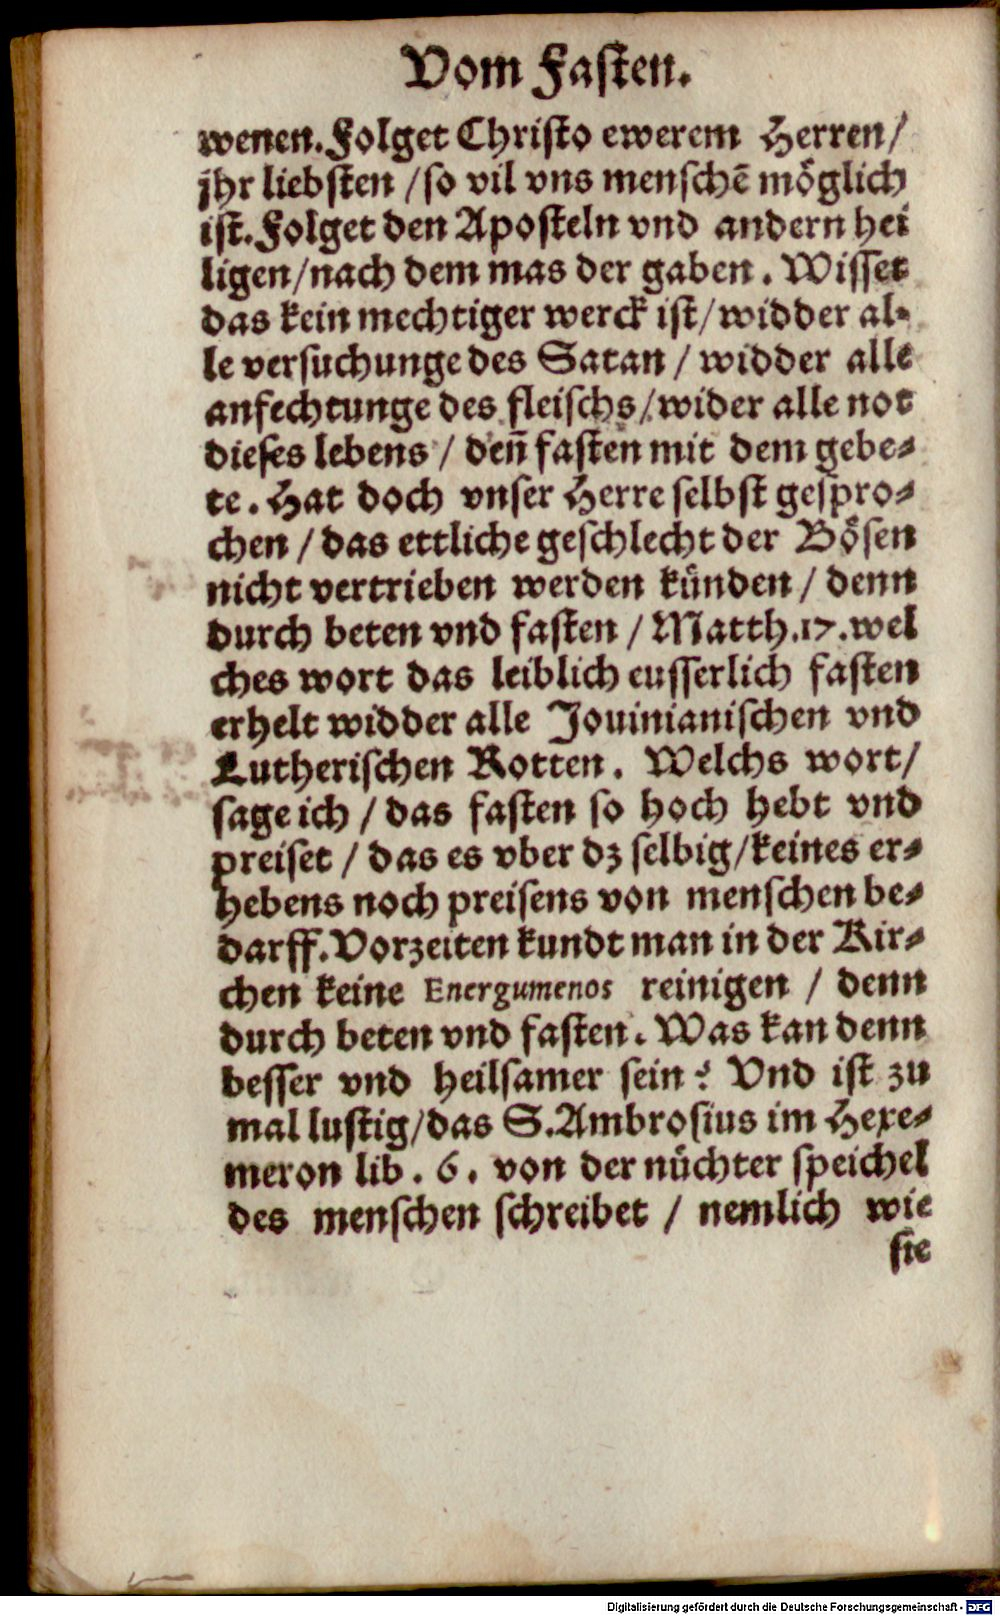 Vom Fasten.
wenen. Folget Christo ewerem Herren/
jhr liebsten / so vil vns menschē möglich
ist. Folget den Aposteln vnd andern hei
ligen / nach dem mas der gaben. Wisset
das kein mechtiger werck ist / widder al-
le versuchunge des Satan / widder alle
anfechtunge des fleischs / wider alle not
dieses lebens / den̄ fasten mit dem gebe-
te. Hat doch vnser Herre selbst gespro-
chen / das ettliche geschlecht der Bösen
nicht vertrieben werden künden / denn
durch beten vnd fasten / Matth. 17. wel
ches wort das leiblich eusserlich fasten
erhelt widder alle Jouinianischen vnd
Lutherischen Rotten. Welchs wort/
sage ich / das fasten so hoch hebt vnd
preiset / das es vber dz selbig / keines er-
hebens noch preisens von menschen be-
darff. Vorzeiten kundt man in der Kir-
chen keine Energumenos reinigen / denn
durch beten vnd fasten. Was kan denn
besser vnd heilsamer sein? Vnd ist zu
mal lustig / das S. Ambrosius im Hexe-
meron lib. 6. von der nüchter speichel
des menschen schreibet / nemlich wie
sie
Digitalisierung gefördert durch die Deutsche Forschungsgemeinschaft - DFG